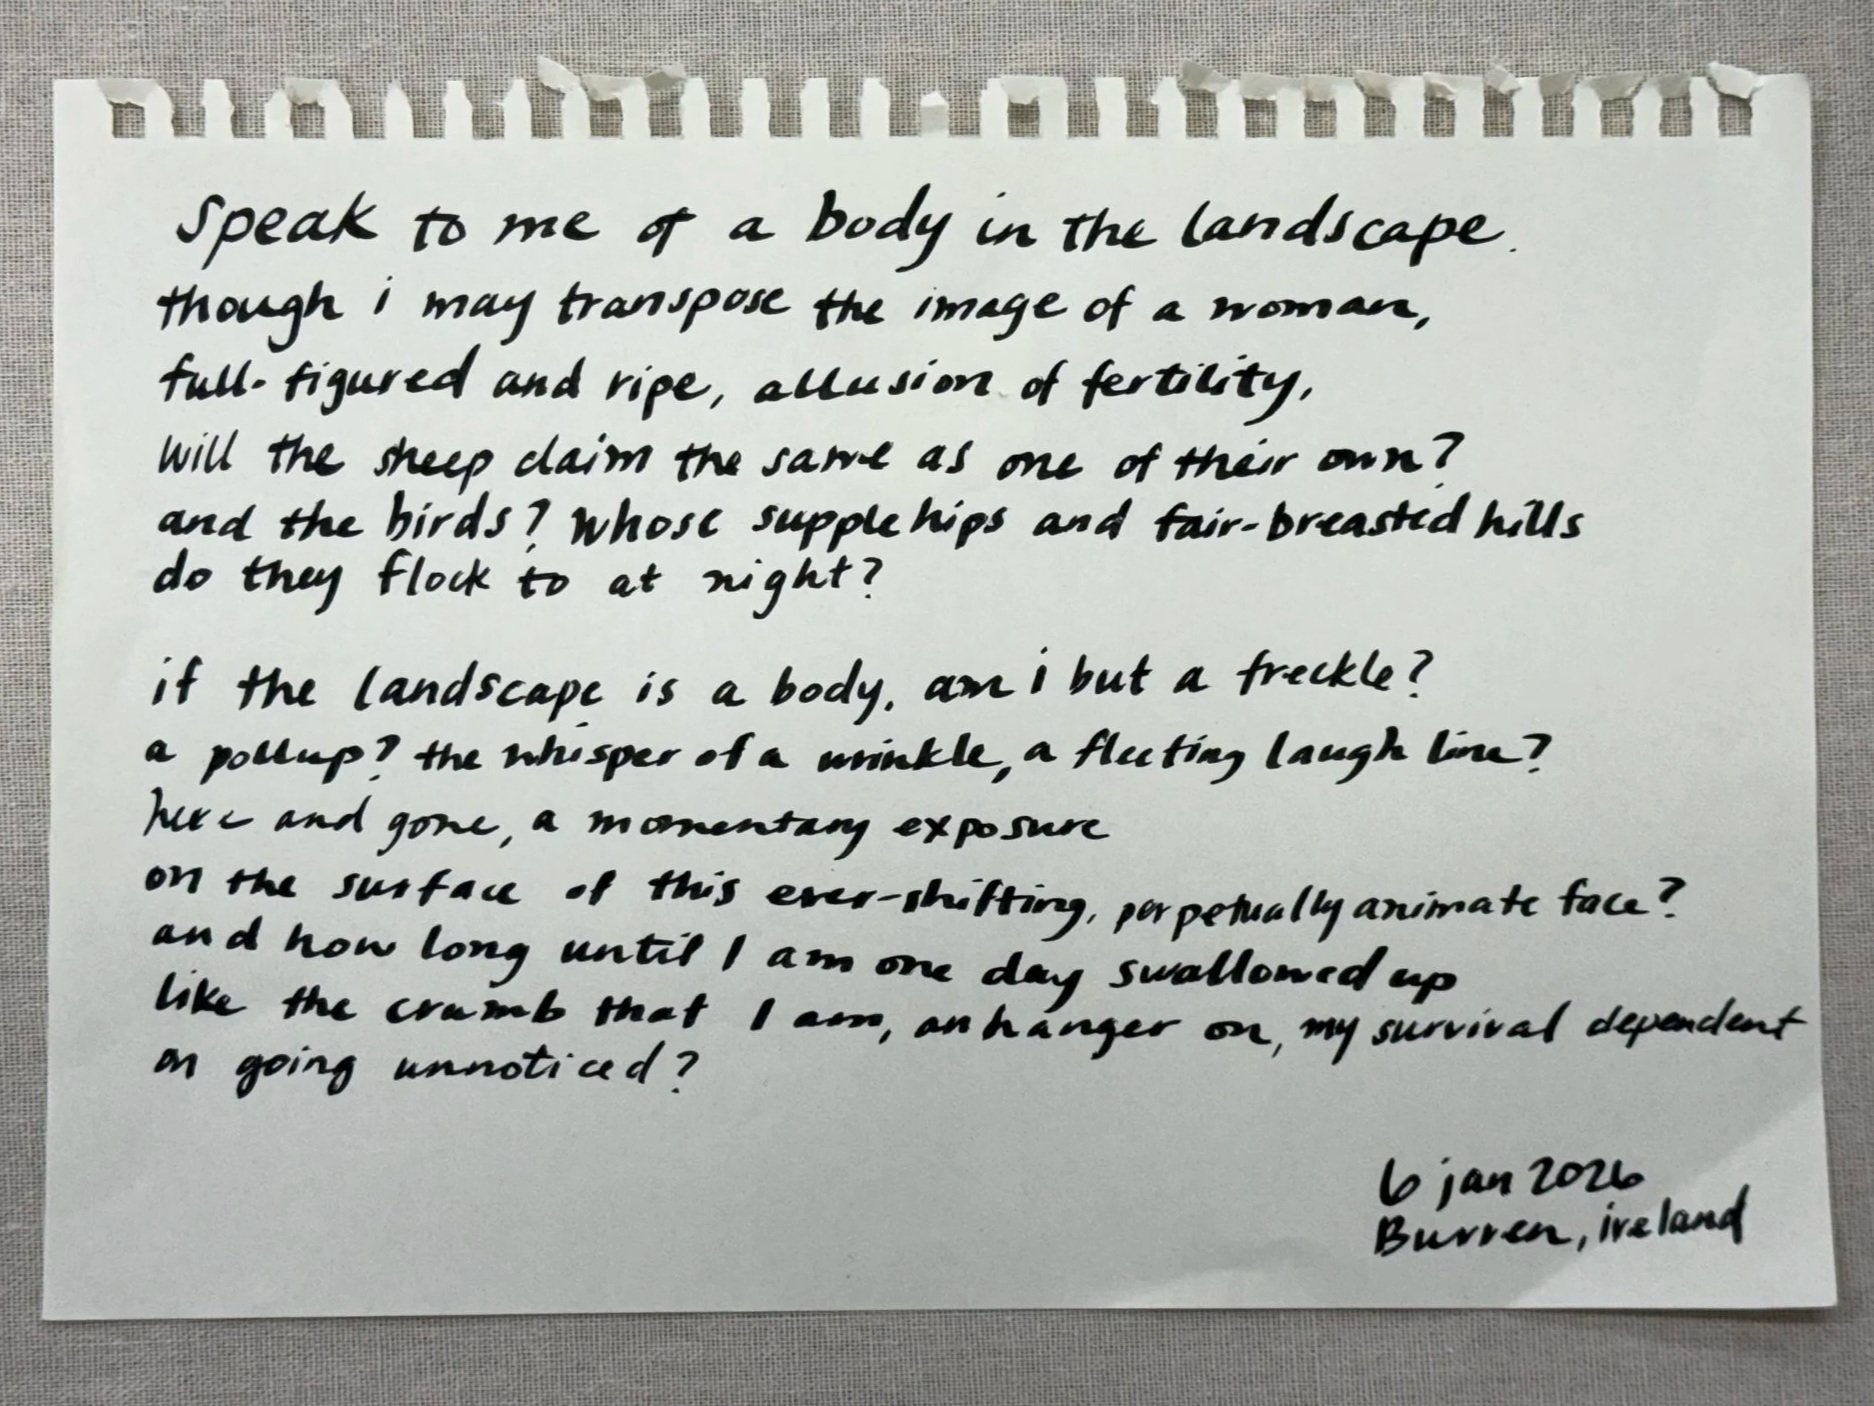 Speak to me of a body in the landscape.
though i may transpose the image of a woman,
full-figured and ripe, allusion of fertility,
will the sheep claim the same as one of their own?
and the birds? whose supple hips and fair-breasted hills
do they flock to at night?
if the landscape is a body, am i but a freckle?
a pollup? the whisper of a wrinkle, a fleeting laugh line?
here and gone, a momentary exposure
on the surface of this ever-shifting, perpetually animate face?
and how long until I am one day swallowed up
like the crumb that I am, an hanger on, my survival dependent
on going unnoticed?
6 jan 2026
Burren, ireland